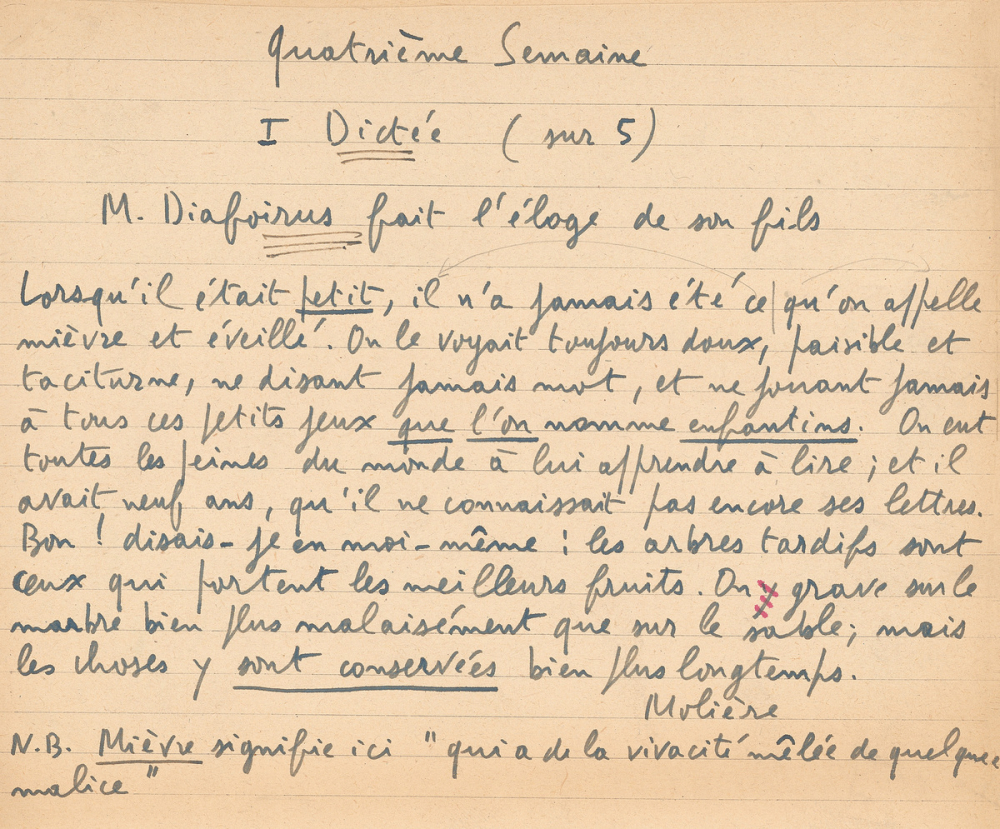 Quatrième Semaine
I Dictée ( sur 5)
M. Diafoirus fait l'éloge de son fils
Lorsqu'il était petit, il n'a jamais été ce qu'on appelle
mièvre et éveillé. On le voyait toujours doux, paisible et
taciturne, ne disant jamais mot, et ne jouant jamais
à tous ces petits jeux que l'on nomme enfantins. On eut
toutes les peines du monde à lui apprendre à lire ; et il
avait neuf ans, qu'il ne connaissait pas encore ses lettres.
Bon ! disais-je en moi-même : les arbres tardifs sont
ceux qui portent les meilleurs fruits. On grave sur le
marbre bien plus malaisément que sur le sable ; mais
les choses y sont conservées bien plus longtemps.
Molière
N.B. Mièvre signifie ici " qui a de la vivacité mêlée de quelque
malice "